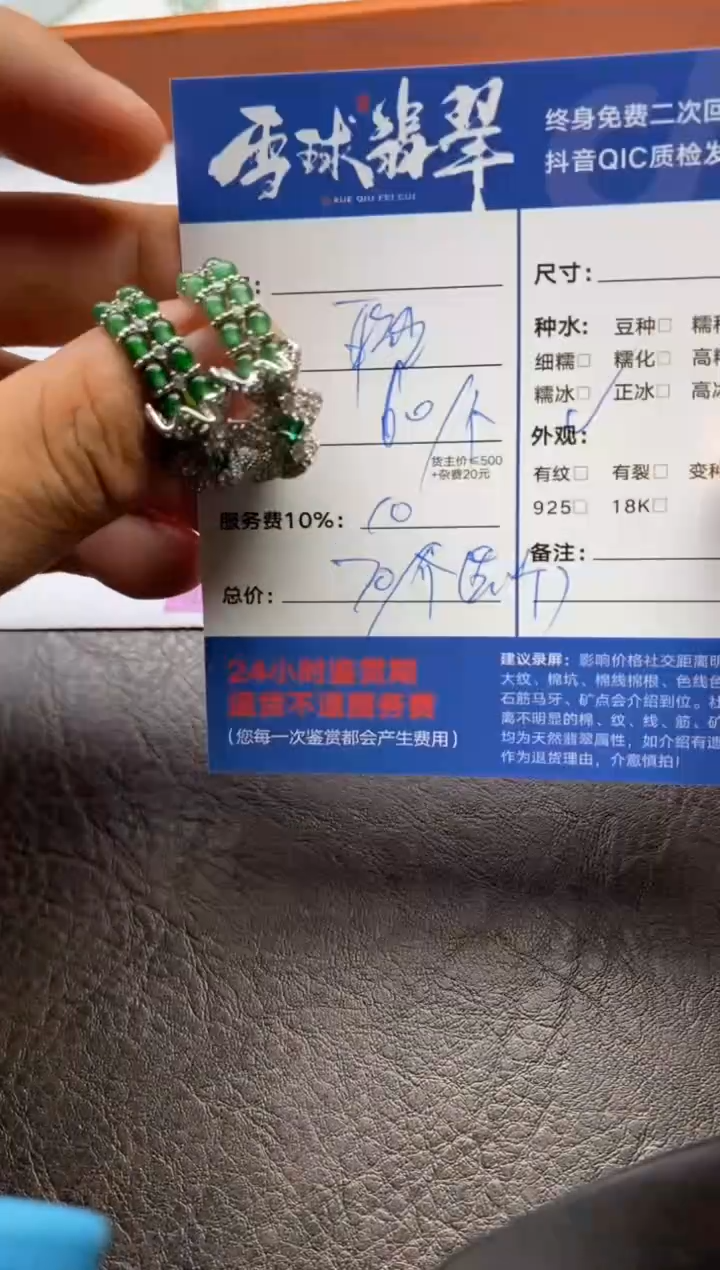 雪球翡翠
XUE QIU FEI CUI
终身免费二次回
抖音QIC质检发
:
60/个
货主价≤500
+杂费20元
服务费10%: 10
总价: 70/
尺寸:
种水: 豆种□ 糯种
细糯□ 糯化□ 高糯
糯冰□ 正冰□ 高冰
外观:
有纹□ 有裂□ 变种
925□ 18K□
备注:
24小时鉴赏期
退货不退服务费
(您每一次鉴赏都会产生费用)
建议录屏: 影响价格社交距离明
大纹、棉坑、棉线棉根、色线色
石筋马牙、矿点会介绍到位。社
离不明显的棉、纹、线、筋、矿
均为天然翡翠属性, 如介绍有遗
作为退货理由, 介意慎拍!